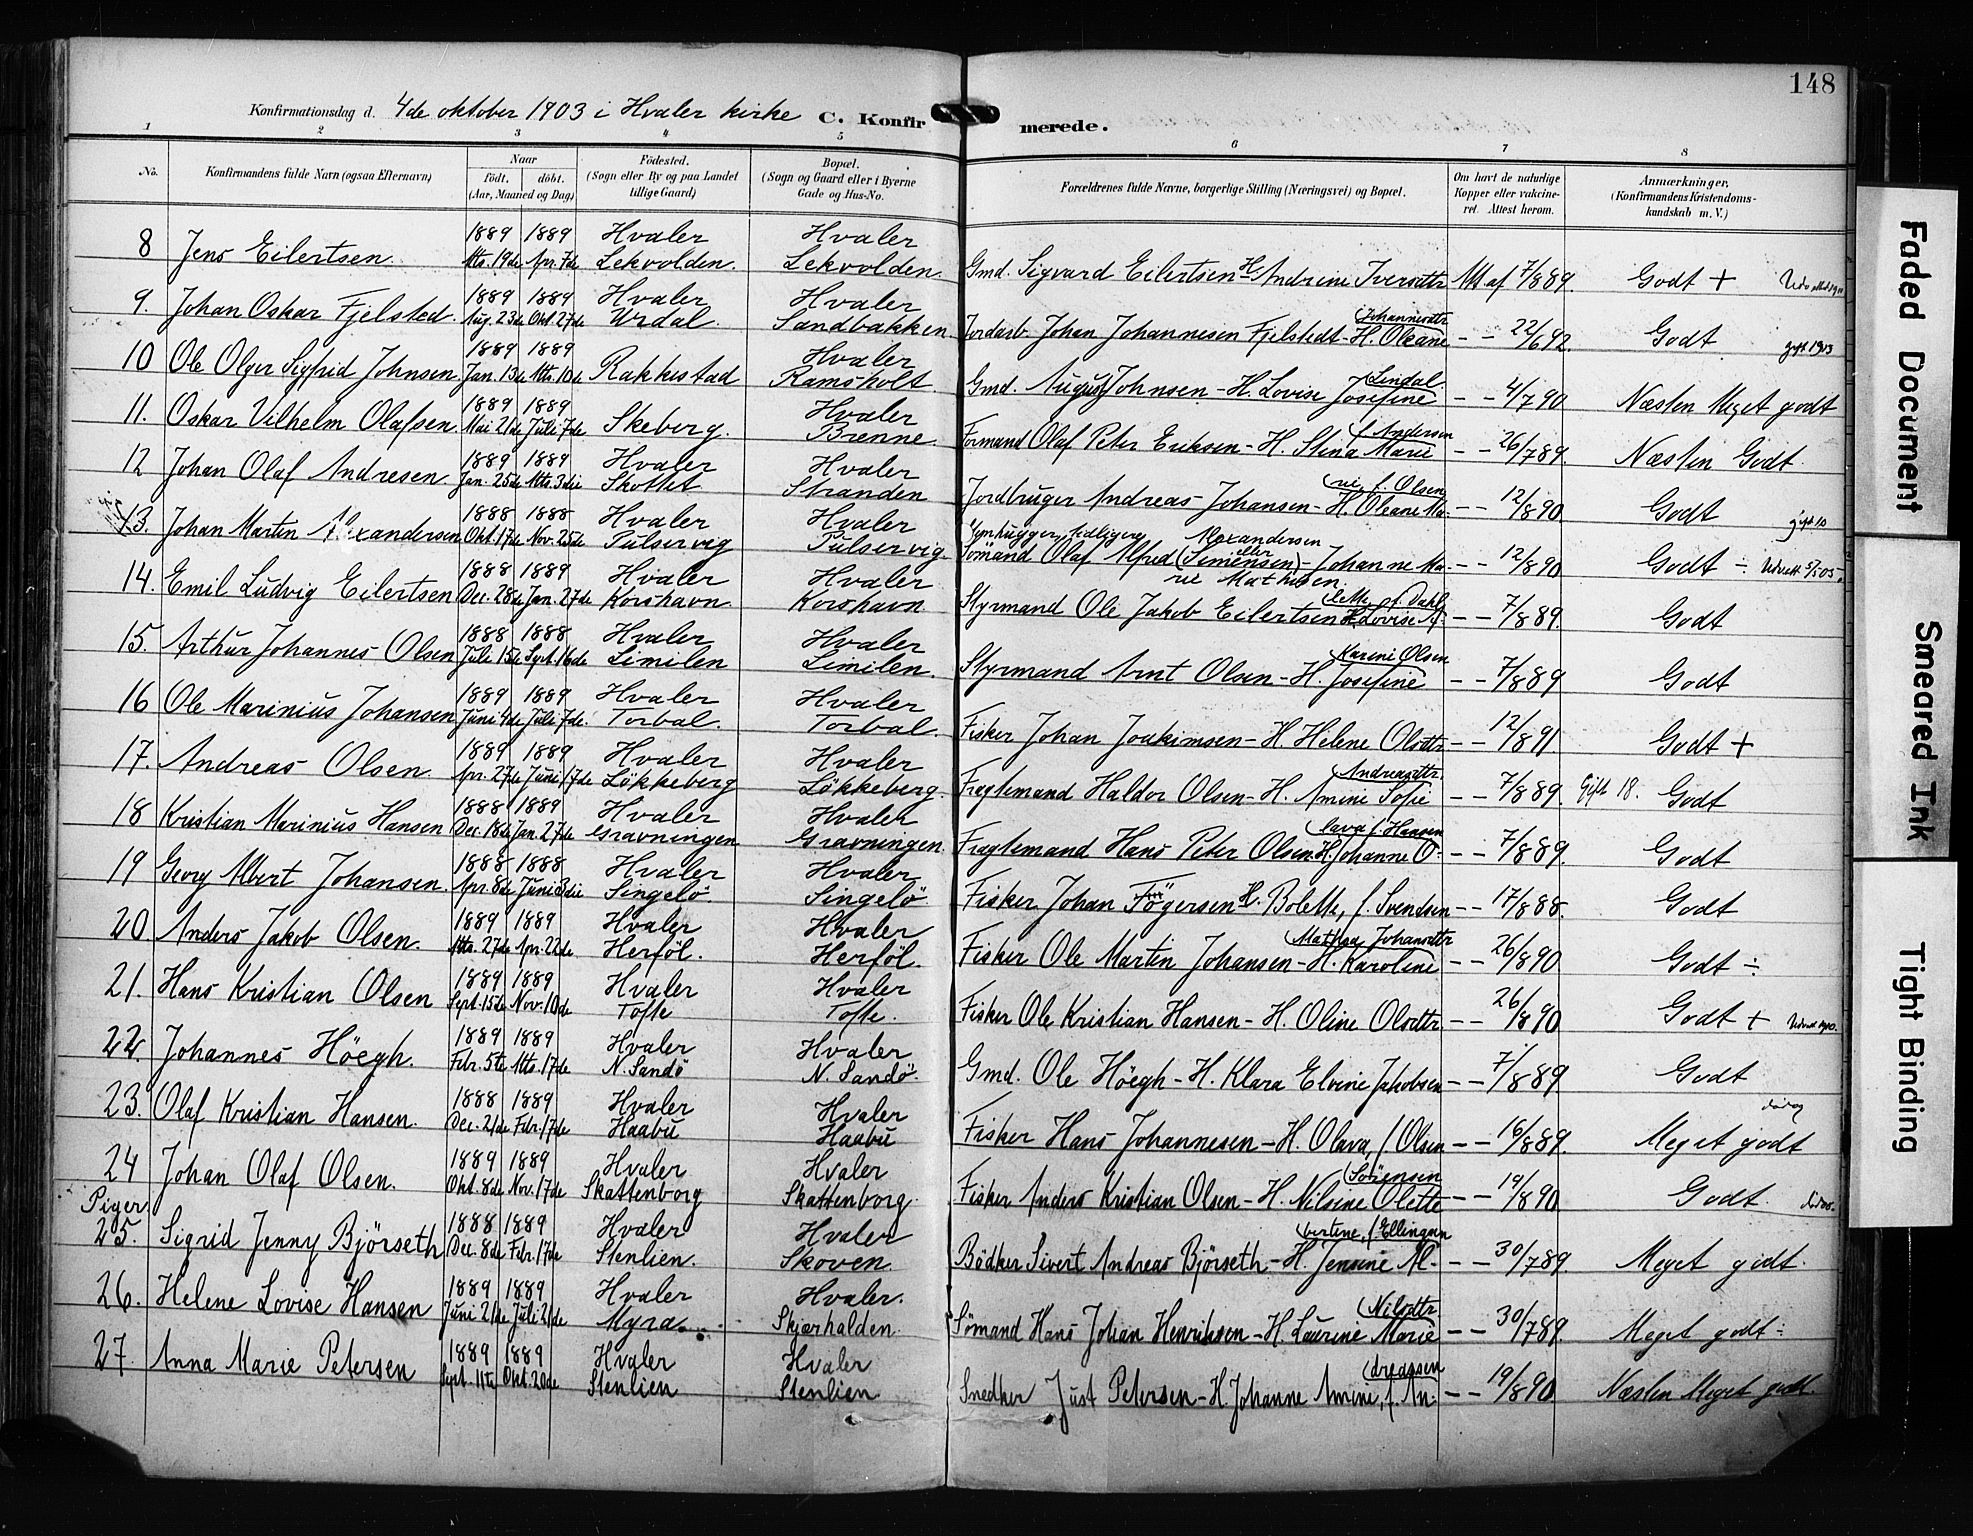 148
Konfirmationsdag d. 4de oktober 1903 i Hvaler kirke C. Konfirmerede.
1 2 3 4 5 6 7 8
No. Konfirmandens fulde Navn (ogsaa Efternavn) Naar födt. döbt. (Aar, Maaned og Dag) Födested. (Sogn eller By og paa Landet tillige Gaard) Bopæl. (Sogn og Gaard eller i Byerne Gade og Hus-No. Forældrenes fulde Navne, borgerlige Stilling (Næringsvei) og Bopæl. Om havt de naturlige Kopper eller vakcineret. Attest herom. Anmærkninger. (Konfirmandens Kristendomskundskab m. V.)
8 Jens Eilertsen 1889 Mts. 19de 1889 Apr. 7de Hvaler Lekvolden. Hvaler Lekvolden. Gmd. Sigvard Eilertsen H. Andrine Iversdtr Att af 7/889. Godt +
9. Johan Oskar Fjelsted 1889 Aug. 23de 1889 Okt. 27de Hvaler Urdal. Hvaler Sandbakken Jordarb. Johan Johannesen Fjelstedt - H. Oleane Johannesdtr - - 22/692. Godt gift 1913
10 Ole Olger Sigfrid Johnsen 1889 Jan. 13de 1889 Mts. 10de Rakkestad Hvaler Ramsholt Gmd. August Johnsen - H. Lovise Josefine Lindal. - - 4/790 Næsten Meget godt
11. Oskar Vilhelm Olafsen 1889 Mai 21de 1889 Juli 7de Skeberg. Hvaler Brenne Formand Olaf Peter Eriksen - H. Stina Marie f. Andersen - - 26/789. Næsten Godt.
12 Johan Olaf Andresen 1889 Jan. 25de 1889 Mts. 3die Hvaler Skottet Hvaler Stranden Jordbruger Andreas Johansen - H. Oleane Marie, f. Olsen - - 12/890 Godt gift 10
13. Johan Martin Alexandersen 1888 Okt. 17de 1888 Nov. 25de Hvaler Pulservig Hvaler Pulservig. Stenhugger, tidligere Sömand Olaf Alfred Alexandersen (eller Simensen) - Johanne Marie Mathisen. - - 12/890 Godt ÷ Udvett. 5/505
14. Emil Ludvig Eilertsen 1888 Dec. 28de 1889 Jan. 27de Hvaler Korshavn Hvaler Korshavn Styrmand Ole Jakob Eilertsen H. Lovise f. Dahl - - 7/889. Godt
15. Arthur Johannes Olsen 1888 Juli 15de 1888 Sept. 16de Hvaler Limilen Hvaler Limilen. Styrmand Arnt Olsen - H. Josefine Karine Olsen - - 7/889 Godt
16 Ole Marinius Johansen 1889 Juni 4de 1889 Juli 7de. Hvaler Torbal. Hvaler Torbal. Fisker Johan Joakimsen - H Helene Olsdtr - - 12/891 Godt +
17. Andreas Olsen 1889 Apr. 27de 1889 Juni 17de Hvaler Lökkeberg Hvaler Lökkeberg. Fragtemand Haldor Olsen - H. Amine Sofie Andreasdtr. - - 7/889. Gift 18. Godt
18 Kristian Marinius Hansen 1888 Dec. 18de 1889 Jan. 27de Hvaler Gravningen Hvaler Gravningen. Fragtemand Hans Peter Olsen H. Johanne Olava f. Hansen - - 7/889. Godt
19 Georg Albert Johansen. 1888 Apr. 8de 1888 Juni 3die Hvaler Singelö Hvaler Singelö Fisker Johan Fögersen H. Bolette, f. Svendsen - - 17/888. Godt
20 Anders Jakob Olsen. 1889 Mts. 27de 1889 Apr. 22de Hvaler Herföl. Hvaler Herföl. Fisker Ole Martin Johansen - H. Karoline Mathea Johansdtr - - 26/890 Godt ÷
21. Hans Kristian Olsen 1889 Sept. 15de 1889 Nov. 10de Hvaler Tofte Hvaler Tofte. Fisker Ole Kristian Hansen - H. Oline Olsdtr. - - 26/890 Godt +
22. Johannes Höegh. 1889 Febr. 5te 1889 Mts. 17de Hvaler N. Sandö Hvaler N. Sandö. Gmd. Ole Höegh - H. Klara Elvine Jakobsen - - 7/889 Godt
23. Olaf Kristian Hansen. 1888 Dec. 21de 1889 Febr. 17de Hvaler Haabu Hvaler Haabu Fisker Hans Johannesen - H. Olava, f. Olsen - - 16/889. Meget godt
24 Johan Olaf Olsen. 1889 Okt. 8de 1889 Nov. 17de Hvaler Skattenborg Hvaler Skattenborg. Fisker Anders Kristian Olsen - H. Nilsine Olette Sörensen - - 19/890 Godt.
Piger
25. Sigrid Jenny Björseth 1888 Dec. 8de 1889 Febr. 17de Hvaler Stenlien. Hvaler Skoven Bödker Sivert Andreas Björseth - H. Jensine Albertine, f. Ellingsen - - 30/789 Meget godt.
26. Helene Lovise Hansen 1889 Juni 21de 1889 Juli 21de Hvaler Myra. Hvaler. Skjærhalden. Sömand Hans Johan Henriksen - H Laurine Marie Nilsdtr - - 30/789 Meget godt ÷
27. Anna Marie Petersen 1889 Sept. 11te 1889 Okt. 20de Hvaler Stenlien Hvaler Stenlien Snedker Just Petersen - H. Johanne Amine, f. Andreassen - - 19/890 Næsten Meget godt.
Faded Document
Smeared Ink
Tight Binding